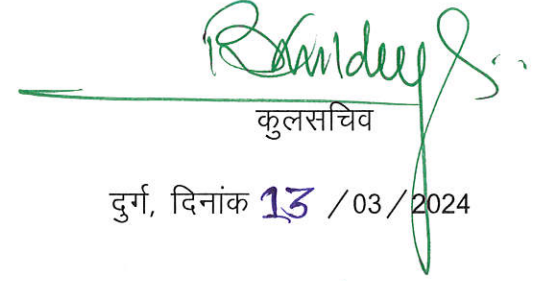 कुलसचिव
दुर्ग, दिनांक 13 /03/2024